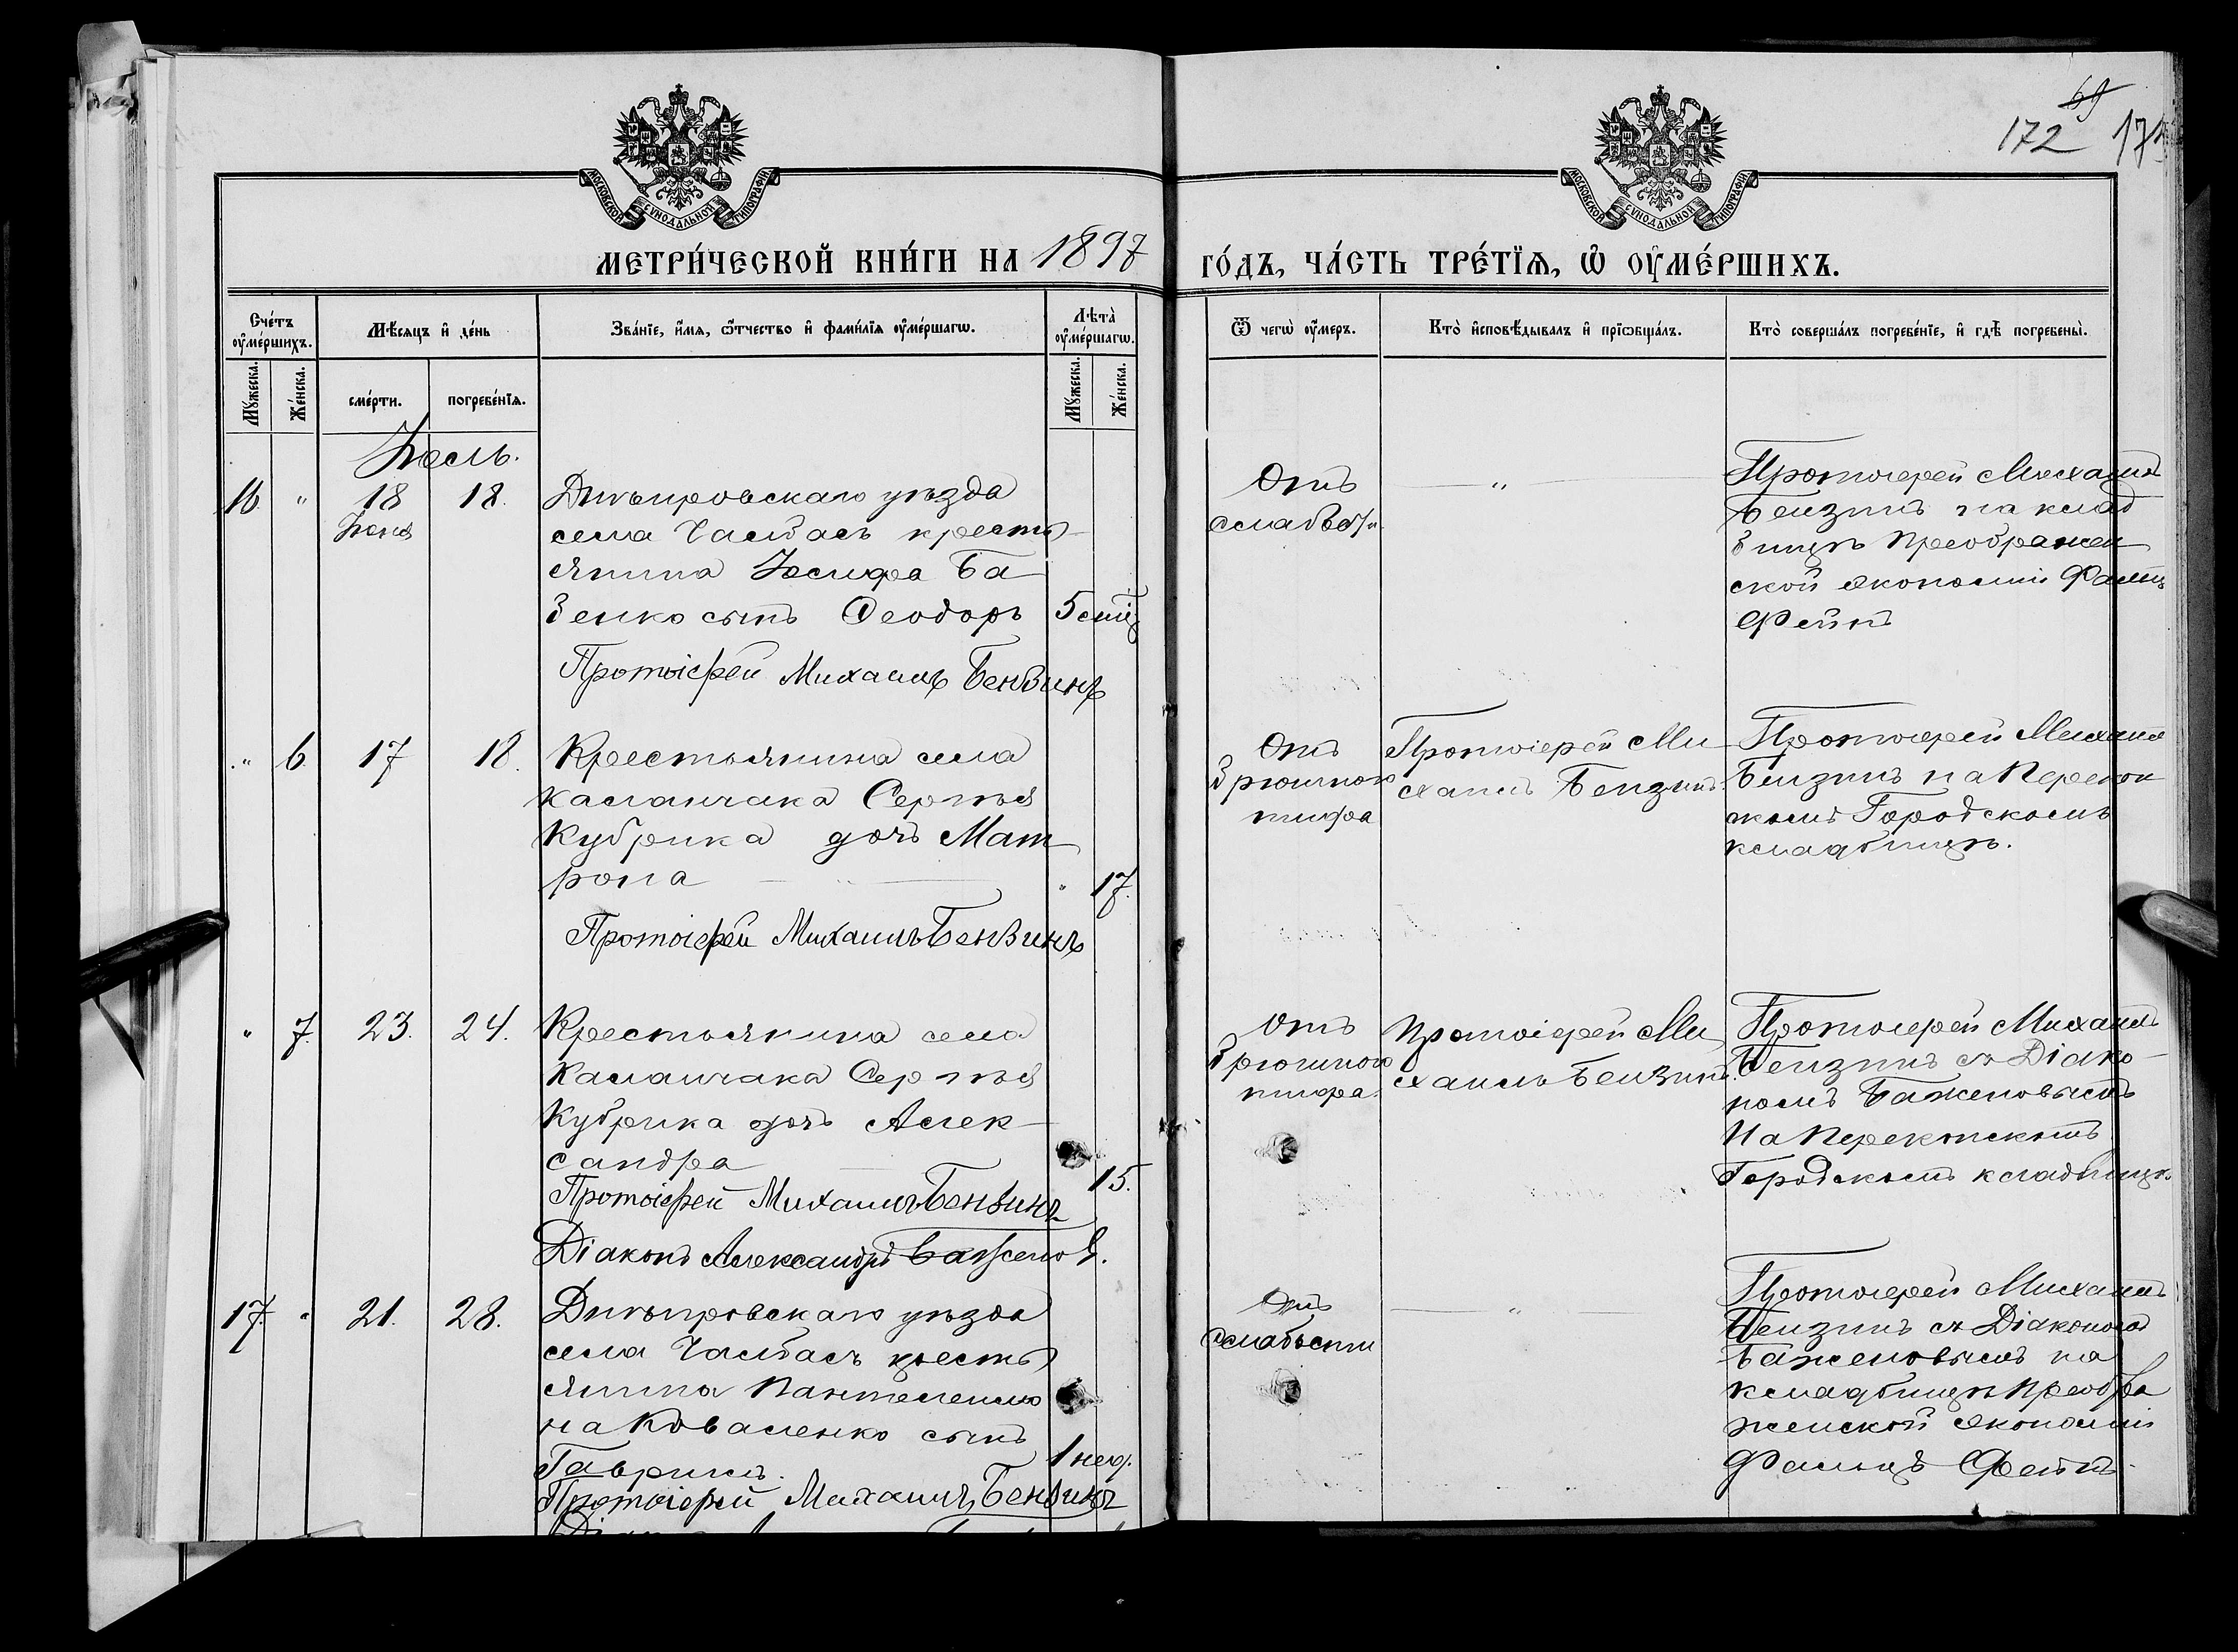 69
172 174
МОСКОВСКОЙ СУНОДАЛЬНОЙ ТИПОГРАФІИ
МОСКОВСКОЙ СУНОДАЛЬНОЙ ТИПОГРАФІИ
МЕТРИ́ЧЕСКОЙ КНИ́ГИ НА 1897 ГО́ДЪ, ЧА́СТЬ ТРЕ́ТІѦ, Ѡ ОУМЕ́РШИХЪ.
Сче́тъ оуме́ршихъ.
Мѣ́сѧцъ и҆ де́нь
Зва́нїе, и҆́мѧ, ѻ҆́тчество и҆ фами́лїѧ оуме́ршагѡ.
Лѣ́та оуме́ршагѡ.
Ѿ чегѡ̀ оу́меръ.
Кто̀ и҆сповѣ́дывалъ и҆ прїѡбща́лъ.
Кто̀ соверша́лъ погребе́нїе, и҆ гдѣ̀ погребены̀.
Му́жеска.
Же́нска.
сме́рти.
погребе́нїѧ.
Му́жеска.
Же́нска.
Іюль.
16. " 18 18.
Іюня
Днѣпровскаго уѣзда
села Чалбасъ кресть
янина Іосифа Ба
зенко сынъ Ѳеодоръ
5 мц
Протоіерей Михаилъ Бензинъ
Отъ
слабости
"
Протоіерей Михаилъ
Бензинъ на клад
бищѣ Преображен
ской экономіи Фальцъ
Фейнъ
" 6. 17 18.
Крестьянина села
Каланчака Сергѣя
Кубрика дочь Мат
рона
" 17.
Протоіерей Михаилъ Бензинъ
Отъ
брюшного
тифа
Протоіерей Ми
хаилъ Бензинъ
Протоіерей Михаилъ
Бензинъ на Перекоп
скомъ Городскомъ
кладбищѣ.
" 7. 23. 24.
Крестьянина села
Каланчака Сергѣя
Кубрика дочь Алек
сандра
15.
Протоіерей Михаилъ Бензинъ
Діаконъ Александръ Баженовъ.
Отъ
брюшного
тифа.
Протоіерей Ми
хаилъ Бензинъ.
Протоіерей Михаилъ
Бензинъ съ Діако
номъ Баженовымъ
На Перекопскомъ
Городскомъ кладбищѣ.
17. " 21. 28.
Днѣпровскаго уѣзда
села Чалбасъ кресть
янина Пантелеимо
на Коваленко сынъ
Гавріилъ.
1 нед.
Протоіерей Михаилъ Бензинъ
Отъ
слабости
"
Протоіерей Михаилъ
Бензинъ съ Діакономъ
Баженовымъ на
кладбищѣ Преобра
женской экономіи
Фальцъ Фейнъ